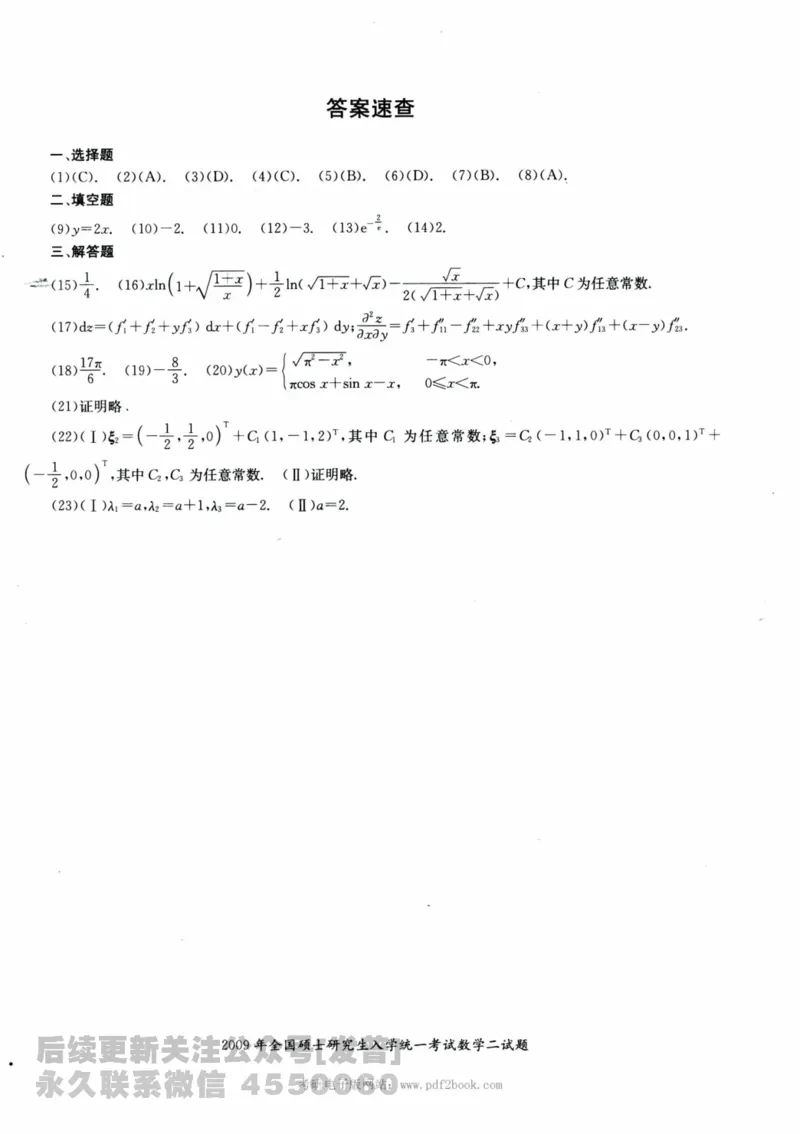 答案速查
一、选择题
(1)(C). (2)(A). (3)(D). (4)(C). (5)(B). (6)(D). (7)(B). (8)(A).
二、填空题
(9)y=2x. (10)-2. (11)0. (12)-3. (13)e^{-\frac{2}{e}}. (14)2.
三、解答题
(15)\frac{1}{4}. (16)xln(1+\sqrt{\frac{1+x}{x}})+\frac{1}{2}ln(\sqrt{1+x}+\sqrt{x})-\frac{\sqrt{x}}{2(\sqrt{1+x}+\sqrt{x})}+C,其中 C 为任意常数.
(17)dz=(f′₁+f′₂+yf′₃) dx+(f′₁-f′₂+xf′₃) dy;\frac{∂²z}{∂x∂y}=f′₃+f″₁₁-f″₂₂+xyf″₃₃+(x+y)f″₁₃+(x-y)f″₂₃.
(18)\frac{17π}{6}. (19)-\frac{8}{3}. (20)y(x)={\sqrt{π²-x²}, -π<x<0,
πcos x+sin x-x, 0≤x<π.
(21)证明略.
(22)(Ⅰ)ξ₂=(-\frac{1}{2},\frac{1}{2},0)^T+C₁(1,-1,2)^T,其中 C₁ 为任意常数;ξ₃=C₂(-1,1,0)^T+C₃(0,0,1)^T+
(-\frac{1}{2},0,0)^T,其中 C₂,C₃ 为任意常数. (Ⅱ)证明略.
(23)(Ⅰ)λ₁=a,λ₂=a+1,λ₃=a-2. (Ⅱ)a=2.
2009 年全国硕士研究生入学统一考试数学二试题
后续更新关注公众号[发替]
永久联系微信 4550060
www.pdf2book.com